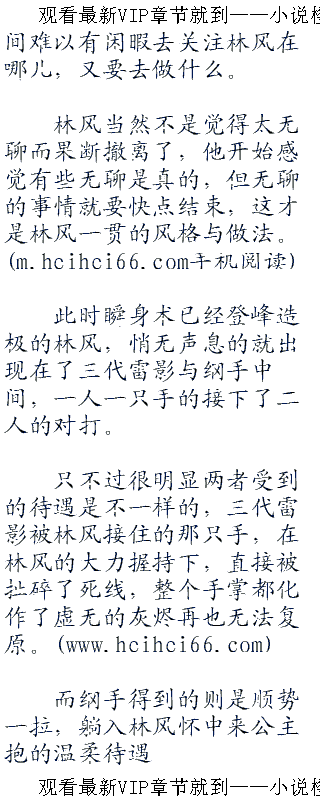 观看最新VIP章节就到——小说检
间难以有闲暇去关注林风在
哪儿，又要去做什么。
林风当然不是觉得太无
聊而果断撤离了，他开始感
觉有些无聊是真的，但无聊
的事情就要快点结束，这才
是林风一贯的风格与做法。
(m.hcihci66.com手机阅读)
此时瞬身术已经登峰造
极的林风，悄无声息的就出
现在了三代雷影与纲手中
间，一人一只手的接下了二
人的对打。
只不过很明显两者受到
的待遇是不一样的，三代雷
影被林风接住的那只手，在
林风的大力握持下，直接被
扯碎了死线，整个手掌都化
作了虚无的灰烬再也无法复
原。(www.hcihci66.com)
而纲手得到的则是顺势
一拉，躺入林风怀中来公主
抱的温柔待遇
观看最新VIP章节就到——小说检